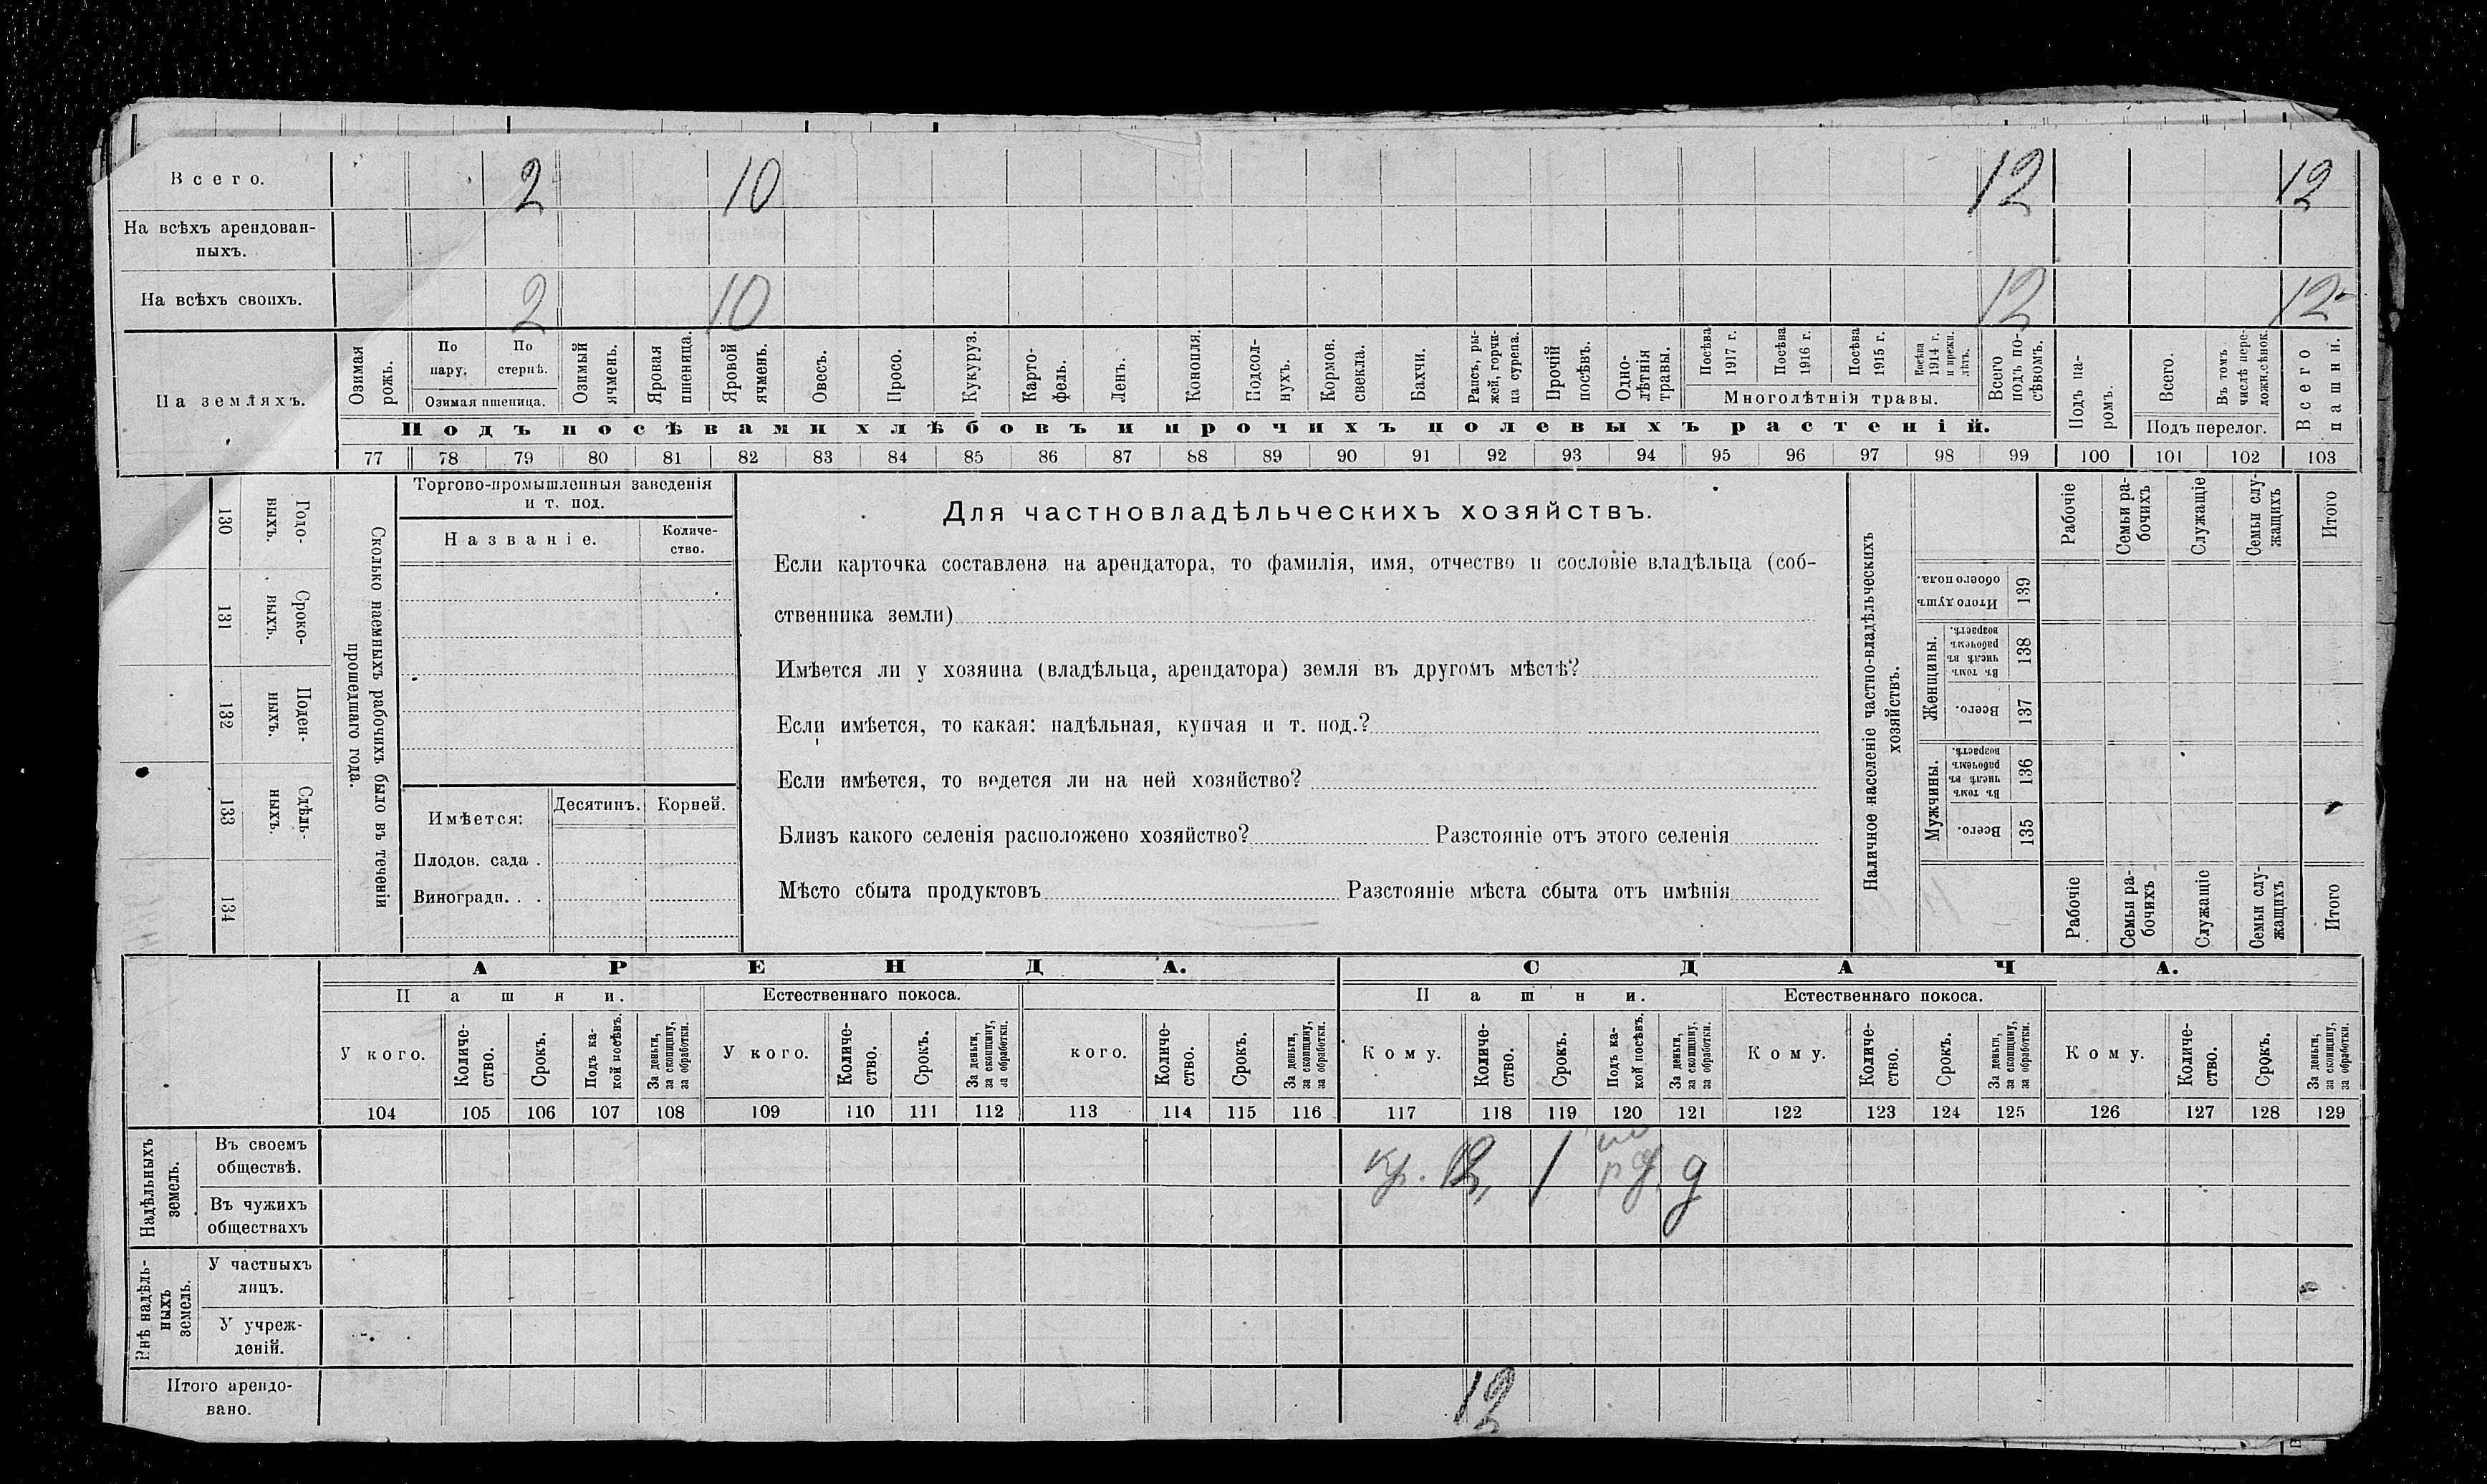 Всего. 2 10 12 12
На всѣхъ арендован-
ныхъ.
На всѣхъ своихъ. 2 10 12 12
На земляхъ.
Озимая рожь.
По пару.
По стернѣ.
Озимая пшеница.
Озимый ячмень.
Яровая пшеница.
Яровой ячмень.
Овесъ.
Просо.
Кукуруз.
Карто-
фель.
Ленъ.
Конопля.
Подсол-
нухъ.
Кормов. свекла.
Бахчи.
Рапсъ, ры-
жей, горчи-
ца сурепа.
Прочій посѣвъ.
Одно-
лѣтнія травы.
Посѣва 1917 г.
Посѣва 1916 г.
Посѣва 1915 г.
Посѣва 1914 г. и прежн. лѣтъ.
Многолѣтнія травы.
Всего подъ по-
сѣвомъ.
Подъ па-
ромъ.
Всего.
Въ томъ числѣ пере-
ложн. сѣнок.
Подъ перелог.
Всего пашни.
Подъ посѣвами хлѣбовъ и прочихъ полевыхъ растеній.
77 78 79 80 81 82 83 84 85 86 87 88 89 90 91 92 93 94 95 96 97 98 99 100 101 102 103
Сколько наемныхъ рабочихъ было въ теченіи
прошедшаго года.
Годо-
выхъ.
130
Сроко-
выхъ.
131
Поден-
ныхъ.
132
Сдѣль-
ныхъ.
133
134
Торгово-промышленныя заведенія
и т. под.
Названіе.
Количе-
ство.
Имѣется:
Десятинъ.
Корней.
Плодов. сада .
Виноградн. . .
Для частновладѣльческихъ хозяйствъ.
Если карточка составлена на арендатора, то фамилія, имя, отчество и сословіе владѣльца (соб-
ственника земли)
Имѣется ли у хозяина (владѣльца, арендатора) земля въ другомъ мѣстѣ?
Если имѣется, то какая: надѣльная, купчая и т. под.?
Если имѣется, то ведется ли на ней хозяйство?
Близъ какого селенія расположено хозяйство? Разстояніе отъ этого селенія
Мѣсто сбыта продуктовъ Разстояніе мѣста сбыта отъ имѣнія
Наличное населеніе частно-владѣльческихъ
хозяйствъ.
Рабочіе
Семьи ра-
бочихъ
Служащіе
Семьи слу-
жащихъ
Итого
Итого душъ обоего пола.
139
Женщины.
Въ томъ числѣ въ рабочемъ возрастѣ.
138
Всего.
137
Мужчины.
Въ томъ числѣ въ рабочемъ возрастѣ.
136
Всего.
135
Рабочіе
Семьи ра-
бочихъ
Служащіе
Семьи слу-
жащихъ
Итого
АРЕНДА. СДАЧА.
Пашни. Естественнаго покоса. Пашни. Естественнаго покоса.
У кого.
Количе-
ство.
Срокъ.
Подъ ка-
кой посѣвъ.
За деньги,
за скопщину,
за обработки.
У кого.
Количе-
ство.
Срокъ.
За деньги,
за скопщину,
за обработки.
кого.
Количе-
ство.
Срокъ.
За деньги,
за скопщину,
за обработки.
Кому.
Количе-
ство.
Срокъ.
Подъ ка-
кой посѣвъ.
За деньги,
за скопщину,
за обработки.
Кому.
Количе-
ство.
Срокъ.
За деньги,
за скопщину,
за обработки.
Кому.
Количе-
ство.
Срокъ.
За деньги,
за скопщину,
за обработки.
104 105 106 107 108 109 110 111 112 113 114 115 116 117 118 119 120 121 122 123 124 125 126 127 128 129
Надѣльныхъ
земель.
Въ своемъ
обществѣ.
кр. 12 1 д
Въ чужихъ
обществахъ
Внѣ надѣль-
ныхъ
земель.
У частныхъ
лицъ.
У учреж-
деній.
Итого арендо-
вано.
12